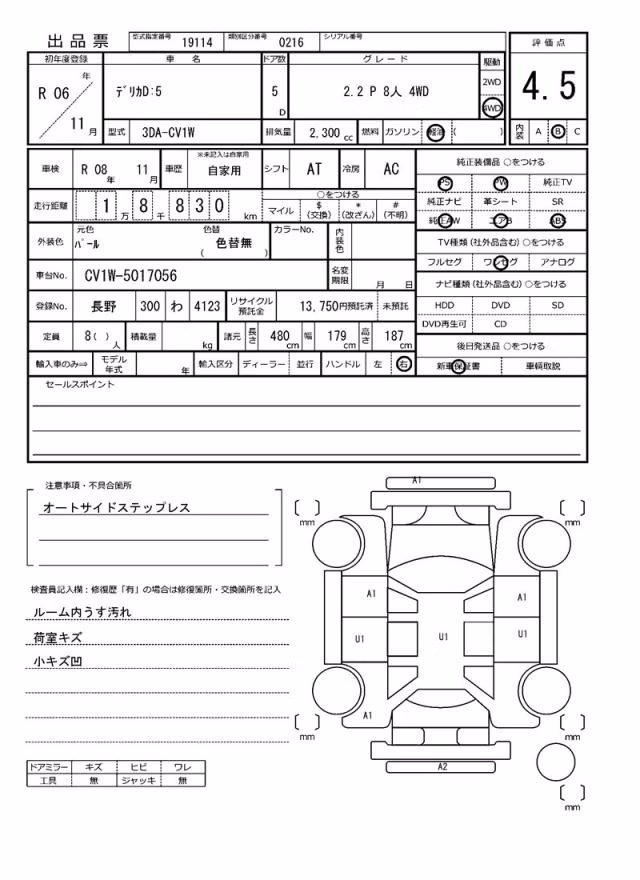 出品票
型式指定番号 19114 類別区分番号 0216 シリアル番号
評価点
4.5
初年度登録 車名 ドア数 グレード 駆動
R 06 年 11 月
デリカD:5
5 D
2.2 P 8人 4WD
2WD
4WD
型式 3DA-CV1W 排気量 2,300 cc 燃料 ガソリン 軽油 ( )
内装 A B C
車検 R 08 年 11 月 車歴 ※未記入は自家用 自家用 シフト AT 冷房 AC
純正装備品 ○をつける
PS PW 純正TV
純正ナビ 革シート SR
純正AW エアB ABS
走行距離 1 万 8 千 8 3 0 km
○をつける
マイル $(交換) *(改ざん) #(不明)
TV種類(社外品含む) ○をつける
フルセグ ワンセグ アナログ
外装色 元色 パール 色替 ( 色替無 ) カラーNo. 内装色
車台No. CV1W-5017056 名変期限 月 日
ナビ種類(社外品含む) ○をつける
HDD DVD SD
DVD再生可 CD
登録No. 長野 300 わ 4123 リサイクル預託金 13,750円預託済 未預託
定員 8( )人 積載量 kg 諸元 長さ 480 cm 幅 179 cm 高さ 187 cm
後日発送品 ○をつける
新車保証書 車輌取説
輸入車のみ⇒ モデル年式 年 輸入区分 ディーラー 並行 ハンドル 左 右
セールスポイント
注意事項・不具合箇所
オートサイドステップレス
検査員記入欄：修復歴「有」の場合は修復箇所・交換箇所を記入
ルーム内うす汚れ
荷室キズ
小キズ凹
ドアミラー キズ ヒビ ワレ
工具 無 ジャッキ 無
A1
mm
mm
A1
A1
U1
U1
U1
A1
mm
mm
A2
mm